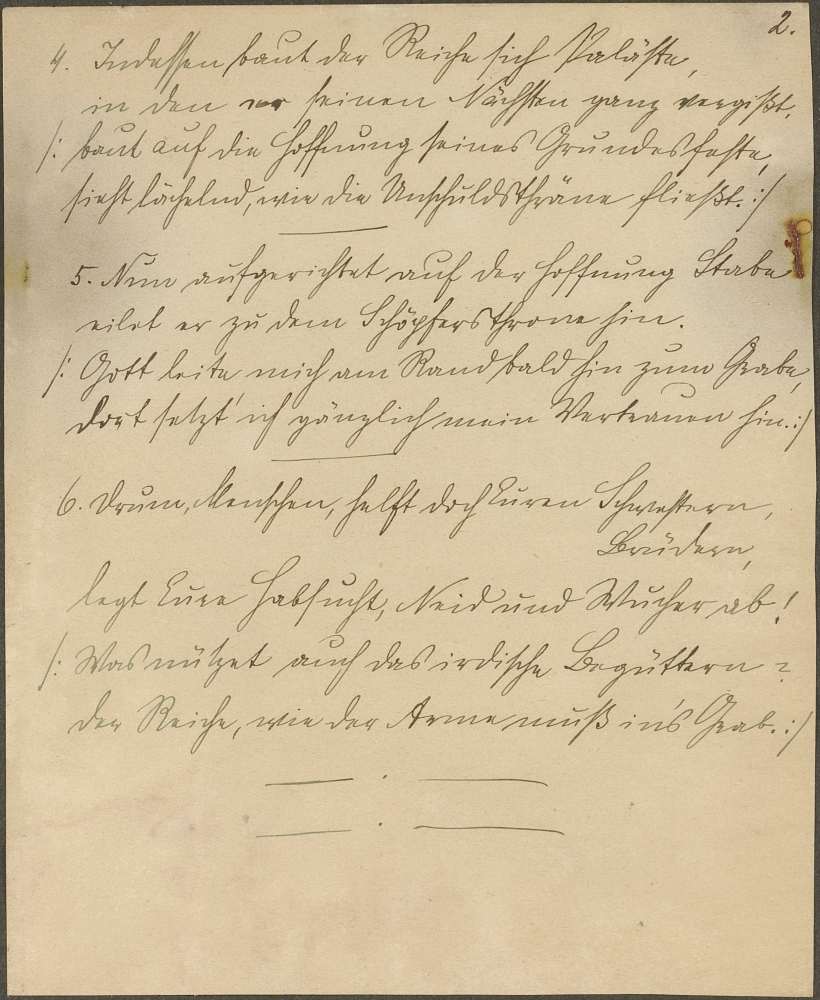 2.
4. Indessen baut der Reiche sich Paläste,
in den er seinen Nächsten ganz vergißt,
/: baut auf die Hoffnung seines Grundes feste,
sieht lächelnd, wie die Unschuldsthräne fließt. :/
5. Nun aufgerichtet auf der Hoffnung Stabe
eilet er zu dem Schöpfersthrone hin.
/: Gott leite mich am Rand bald hin zum Grabe,
dort setzt' ich gänzlich mein Vertrauen hin. :/
6. Drum, Menschen, helft doch Euren Schwestern,
Brüdern,
legt Eure Habsucht, Neid und Wucher ab!
/: Was nützet auch das irdische Begüttern?
der Reiche, wie der Arme muß in's Grab. :/